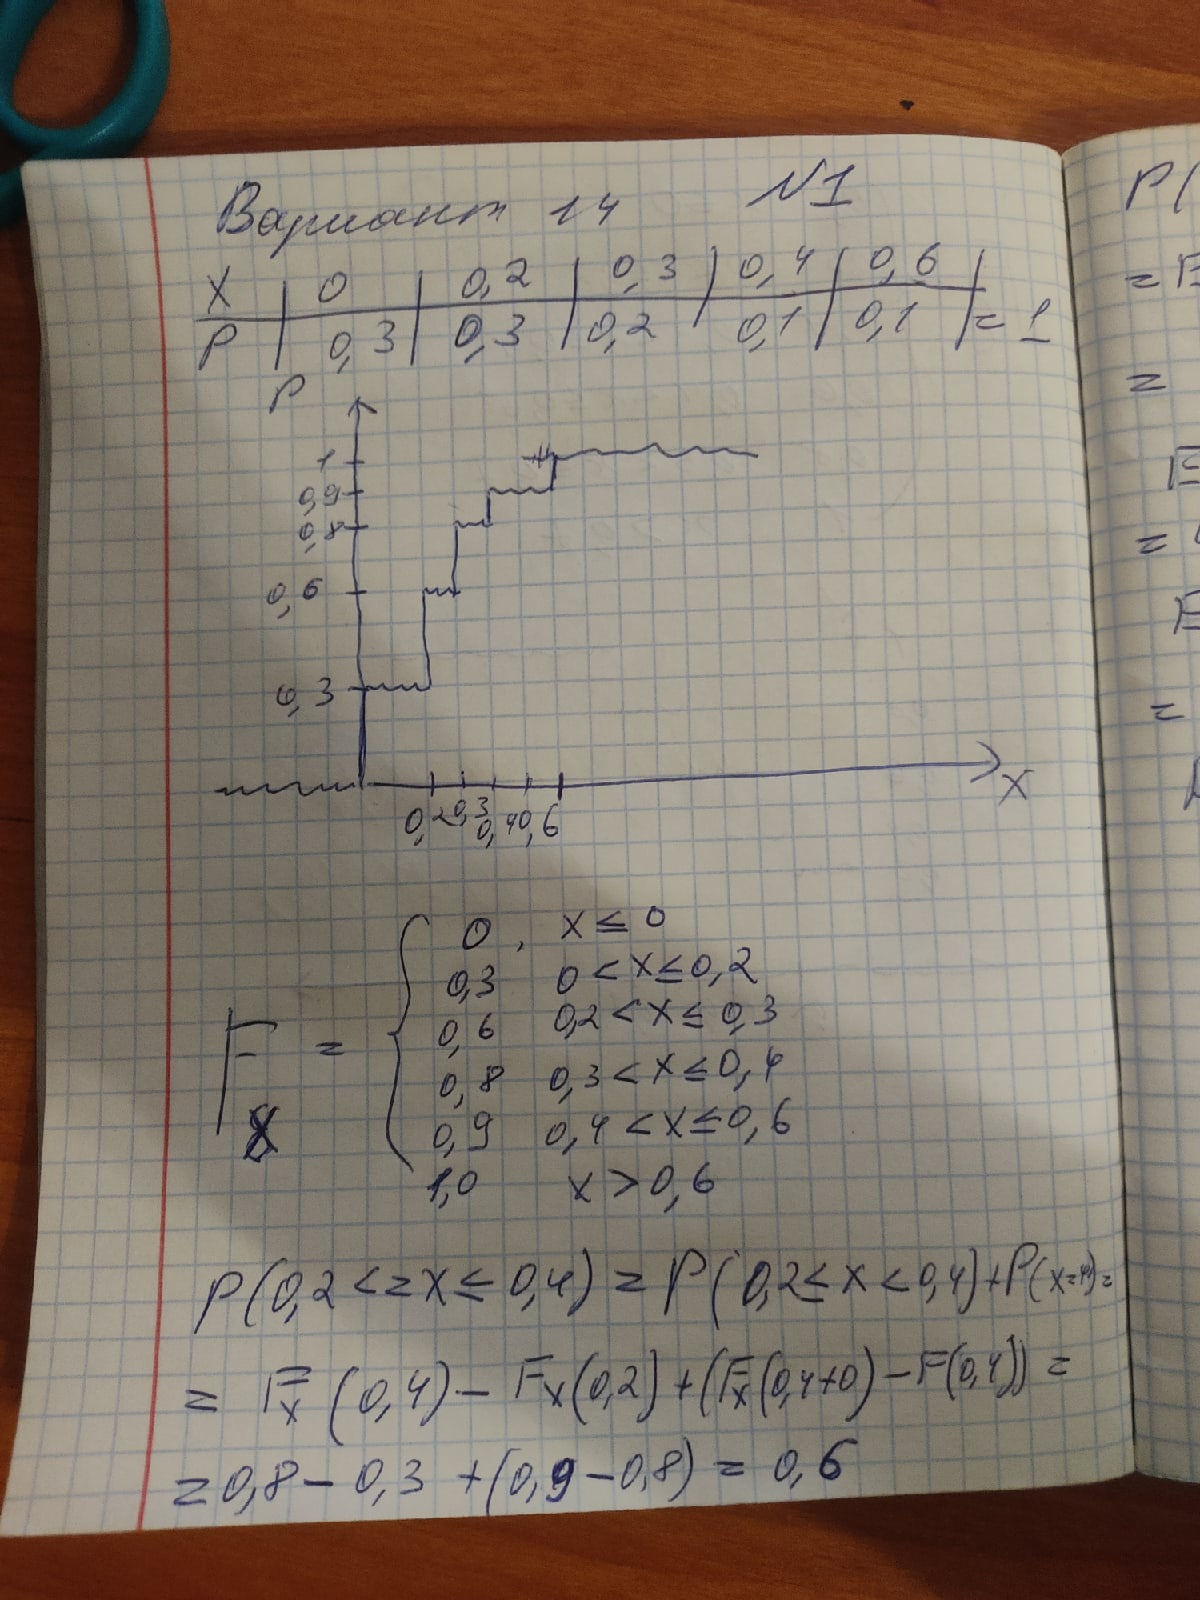 Вариант 14 N1
X | 0 | 0,2 | 0,3 | 0,4 | 0,6 |
P | 0,3 | 0,3 | 0,2 | 0,1 | 0,1 | = 1
P
1
0,9
0,8
0,6
0,3
0,2 0,3 0,4 0,6 X
0, x ≤ 0
0,3 0 < x ≤ 0,2
0,6 0,2 < x ≤ 0,3
F x = {
0,8 0,3 < x ≤ 0,4
0,9 0,4 < x ≤ 0,6
1,0 x > 0,6
P(0,2 <= x ≤ 0,4) = P(0,2 ≤ x < 0,4) + P(x=4) =
= Fx (0,4) - Fx(0,2) + (Fx(0,4+0) - F(0,4)) =
= 0,8 - 0,3 + (0,9 - 0,8) = 0,6
P(
=
=
=
=